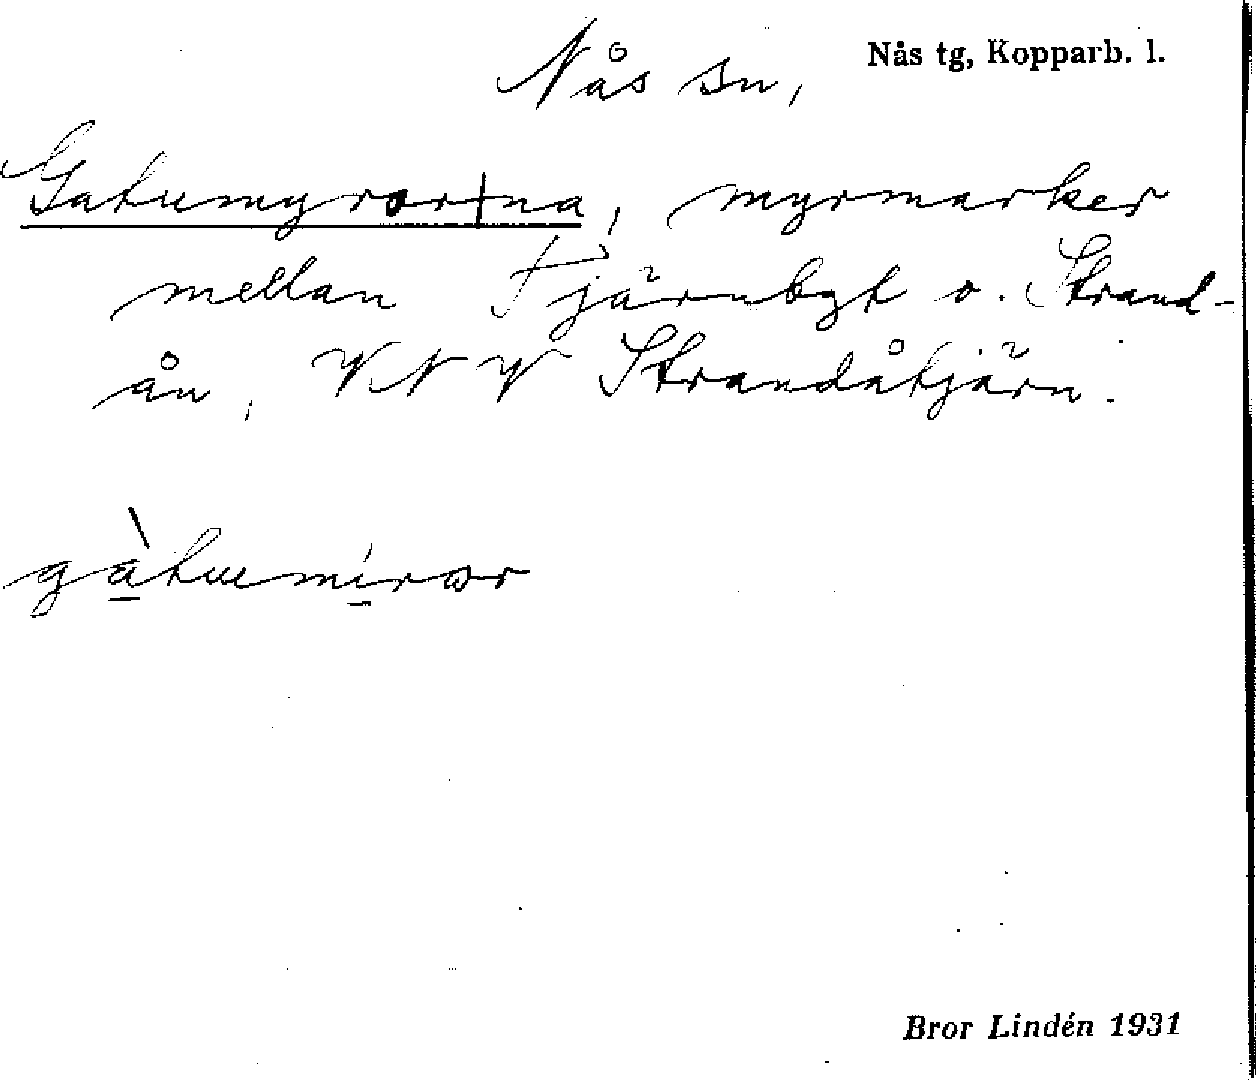 Nås sn,
Nås tg, Kopparb. l.
Gatumyror+na, myrmarker
mellan Tjärnbgt o. Strand-
ån, VNV Strandåtjärn.
gàtumíror
Bror Lindén 1931